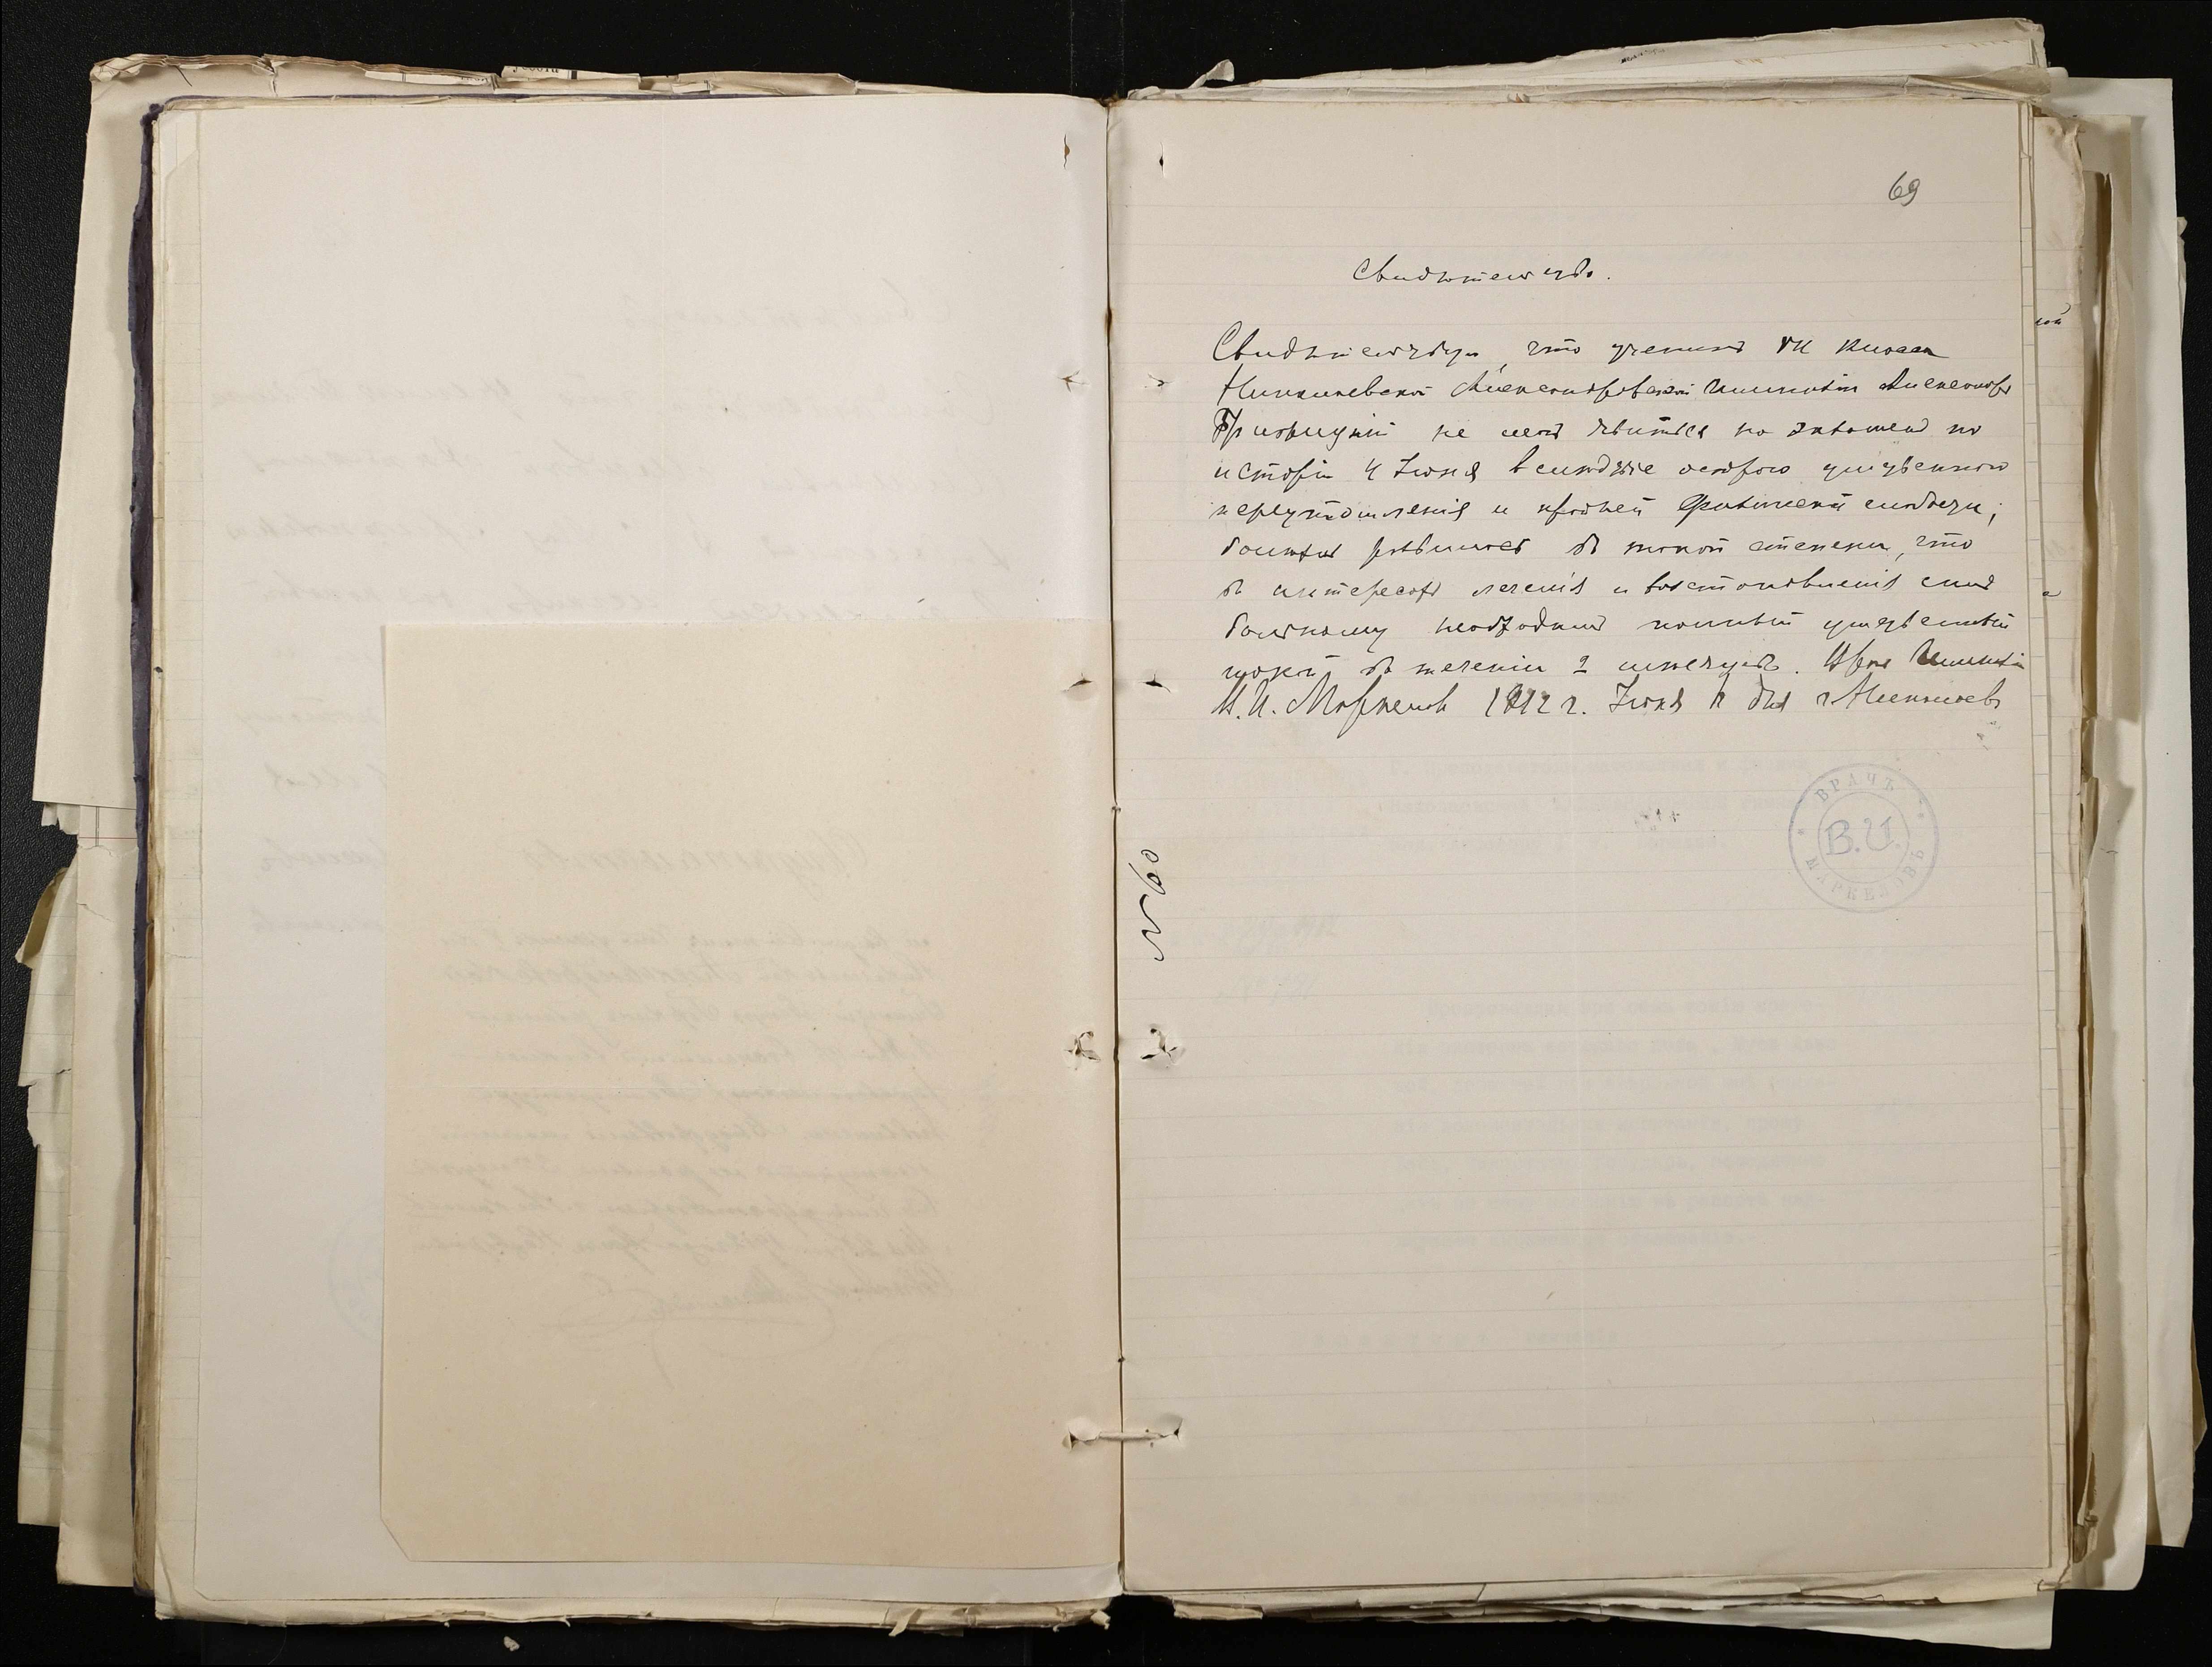 69
Свидѣтельство.
Свидѣтельствую, что ученикъ VII класса
Николаевской Александровской гимназіи Александръ
не могъ явиться на экзаменъ по
исторіи 4 Іюня вслѣдствіе остраго умственнаго
переутомленія и крайней физической слабости;
болѣзнь развилась въ такой степени, что
въ интересахъ леченія и возстановленія силъ
больному необходимъ полный умственный
покой въ теченіи 2 мѣсяцевъ. Врачъ Гимназіи
В. И. Маркеловъ 1912 г. Іюня дня г. Николаевъ
ВРАЧЪ
В.И.
МАРКЕЛОВЪ
№ 60